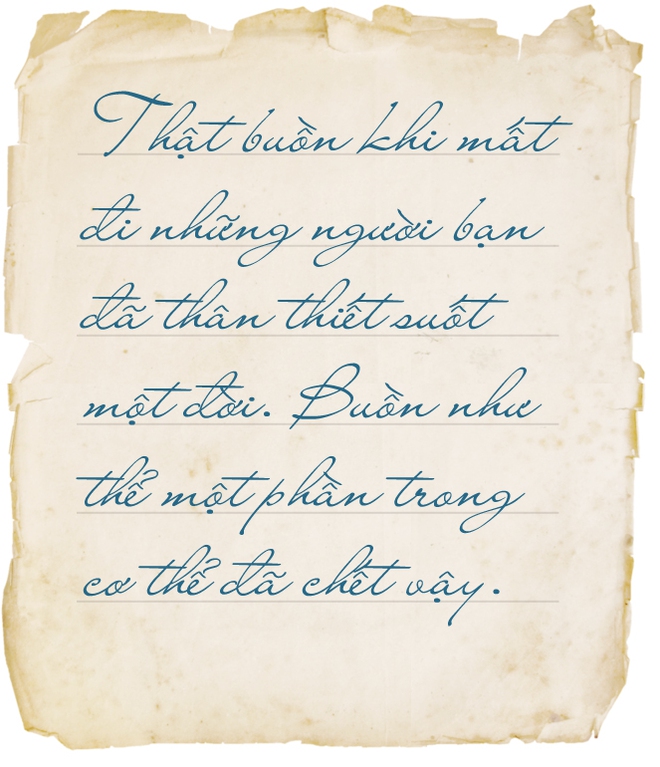 Thật buồn khi mất
đi những người bạn
đã thân thiết suốt
một đời. Buồn như
thể một phần trong
cơ thể đã chết vậy.